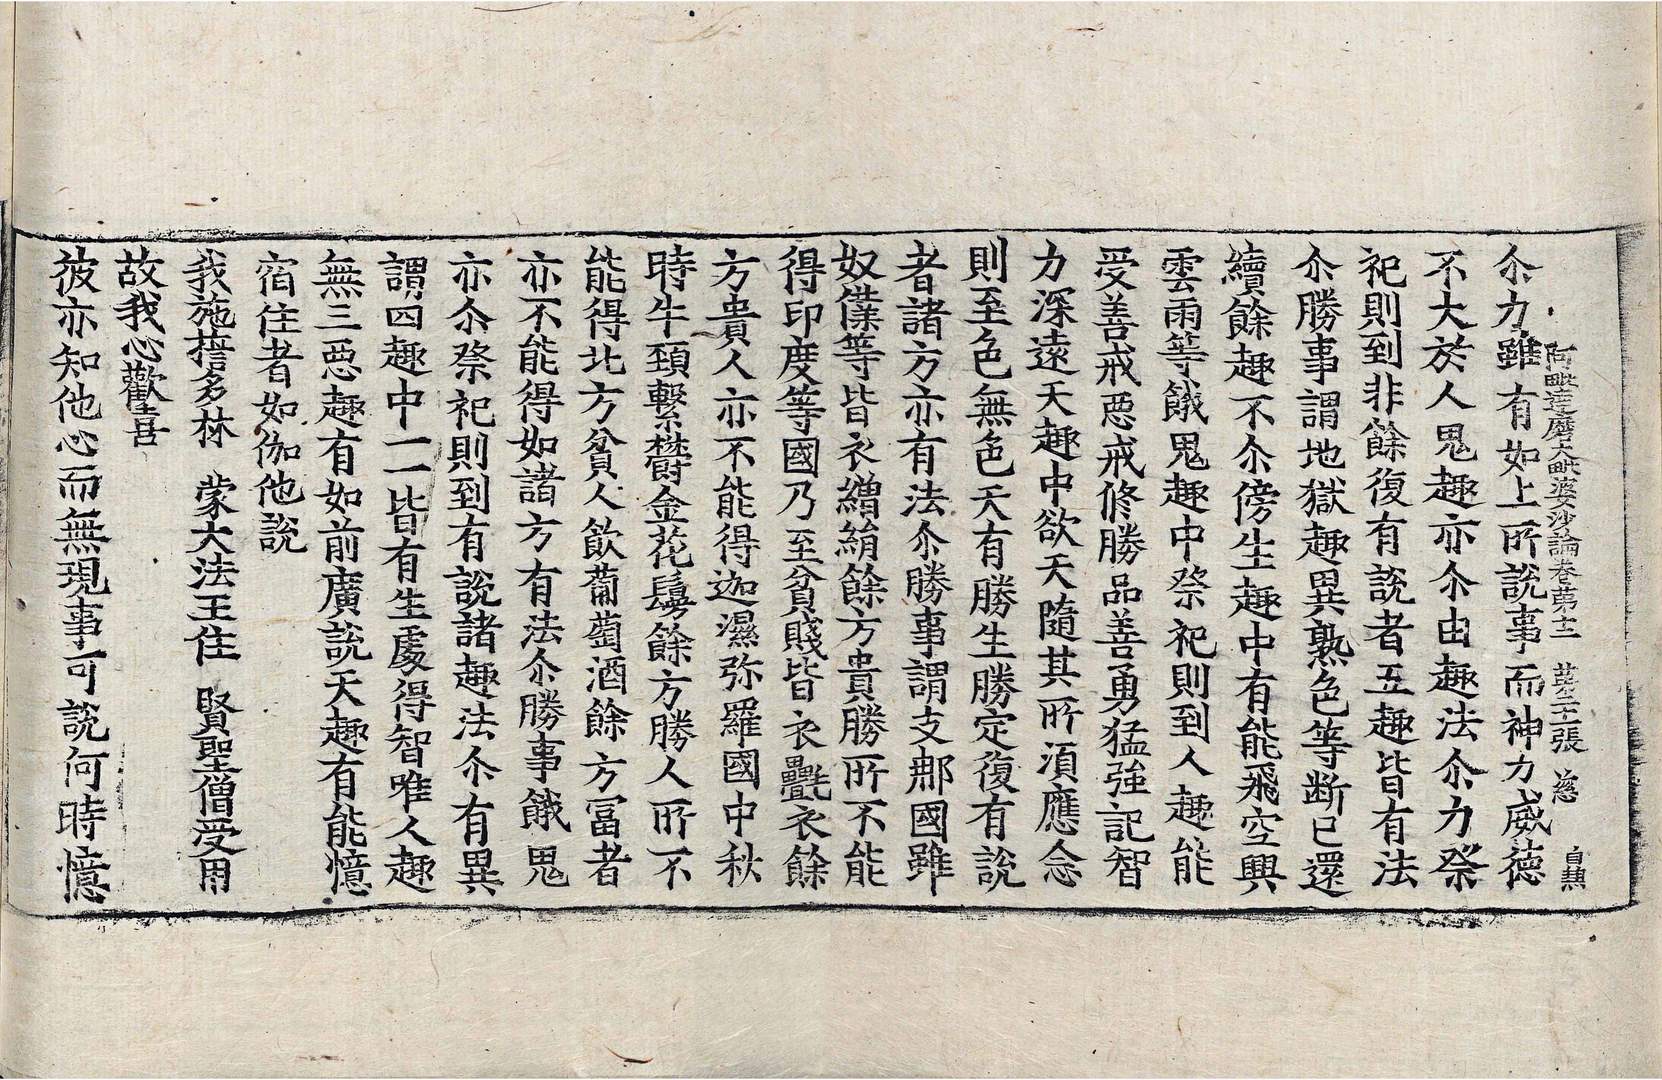 阿毗達磨大毗婆沙論卷第十二 第二十張 慈 自熱
尒力雖有如上所說事而神力威德
不大於人鬼趣亦尒由趣法尒力祭
祀則到非餘復有說者五趣皆有法
尒勝事謂地獄趣異熟色等断已還
續餘趣不尒傍生趣中有能飛空興
雲雨等餓鬼趣中祭祀則到人趣能
受善戒惡戒修勝品善勇猛強記智
力深遠天趣中欲天隨其所湏應念
則至色無色天有勝生勝定復有說
者諸方亦有法尒勝事謂支那國雖
奴僕等皆衣繒絹餘方貴勝所不能
得印度等國乃至貧賤皆衣㲲衣餘
方貴人亦不能得迦濕弥羅國中秋
時牛頸繫欝金花鬘餘方勝人所不
能得北方貧人飲蒲萄酒餘方冨者
亦不能得如諸方有法尒勝事餓鬼
亦尒祭祀則到有說諸趣法尒有異
謂四趣中一一皆有生處得智唯人趣
無三惡趣有如前廣說天趣有能憶
宿住者如伽他說
我施誓多林　蒙大法王住　賢聖僧受用
故我心歡喜
彼亦知他心而無現事可說何時憶